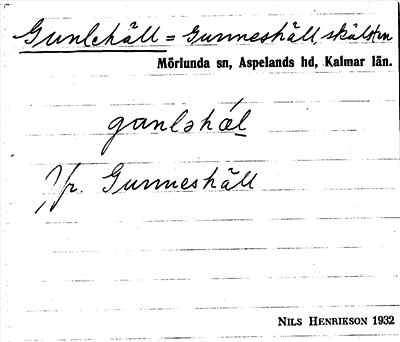 Gunlehäll = Gunneshäll, skälsten
Mörlunda sn, Aspelands hd, Kalmar län.
gɑnləhál
Jfr. Gunneshäll
NILS HENRIKSON 1932